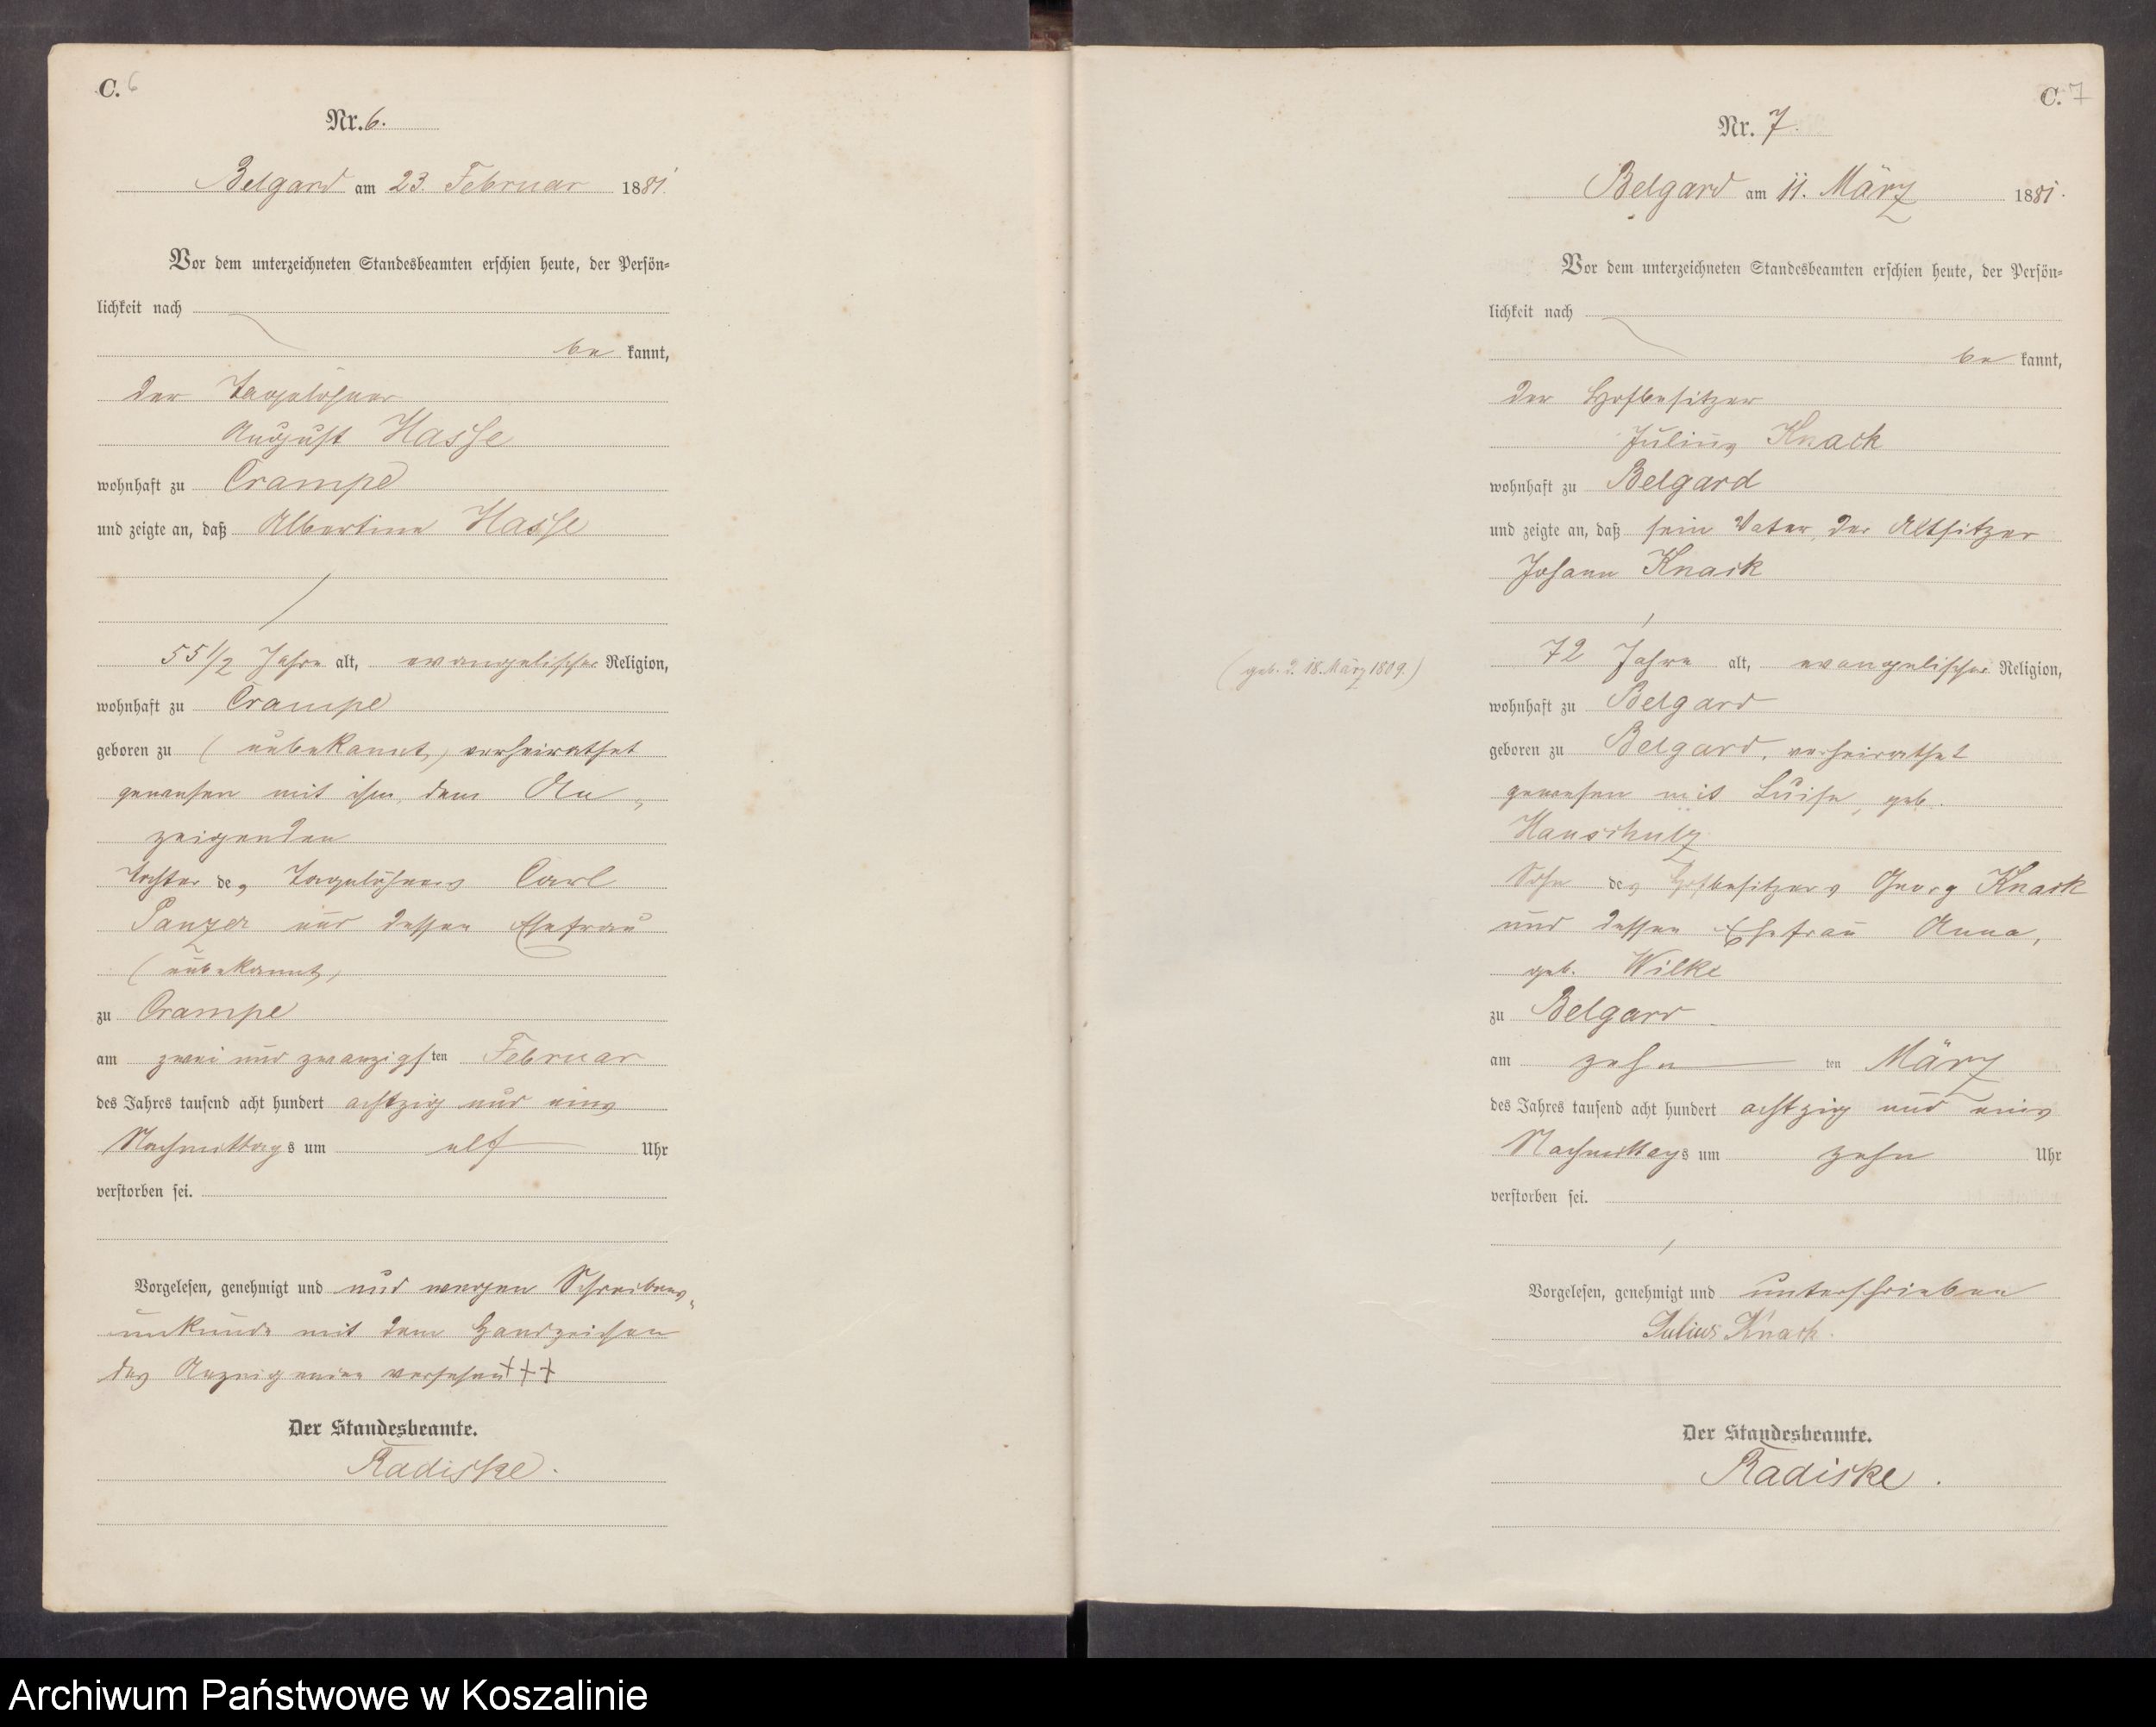 C. 6
Nr. 6.
Belgard am 23. Februar 1881.
Vor dem unterzeichneten Standesbeamten erschien heute, der Persön=
lichkeit nach
be kannt,
der Tagelöhner
August Hasse
wohnhaft zu Crampe
und zeigte an, daß Albertine Hasse
55 1/2 Jahre alt, evangelischer Religion,
wohnhaft zu Crampe
geboren zu (unbekannt) verheirathet
gewesen mit ihm, dem An=
zeigenden
Tochter des Tagelöhners Carl
Panzer und dessen Ehefrau
(unbekannt)
zu Crampe
am zwei und zwanzigsten Februar
des Jahres tausend acht hundert achtzig und eins
Nachmittags um elf Uhr
verstorben sei.
Vorgelesen, genehmigt und und wegen Schreibens=
unkunde mit dem Handzeichen
des Anzeigenden versehen +++
Der Standesbeamte.
Radiske.
C. 7
Nr. 7.
Belgard am 11. März 1881.
Vor dem unterzeichneten Standesbeamten erschien heute, der Persön=
lichkeit nach
be kannt,
der Hofbesitzer
Julius Knack
wohnhaft zu Belgard
und zeigte an, daß sein Vater, der Altsitzer
Johann Knack
(geb. d. 18. März 1809.)
72 Jahre alt, evangelischer Religion,
wohnhaft zu Belgard
geboren zu Belgard, verheirathet
gewesen mit Luise, geb.
Hanschulz
Sohn des Hofbesitzers Georg Knack
und dessen Ehefrau Anna,
geb. Wilke
zu Belgard
am zehn ten März
des Jahres tausend acht hundert achtzig und eins
Nachmittags um zehn Uhr
verstorben sei.
Vorgelesen, genehmigt und unterschrieben
Julius Knack.
Der Standesbeamte.
Radiske.
Archiwum Państwowe w Koszalinie